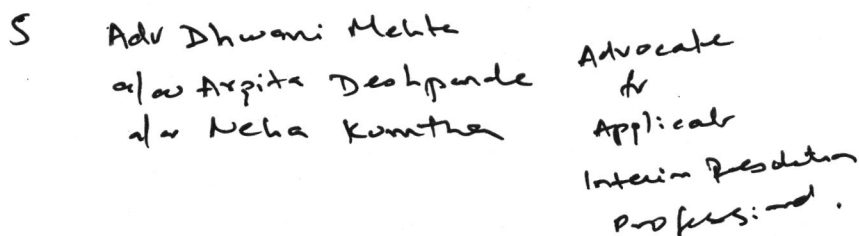 5 Adv Dhwani Mehta
a/w Arpita Deshpande
a/w Neha Kumtha
Advocate
for
Applicant
Interim Resolution
Professional.